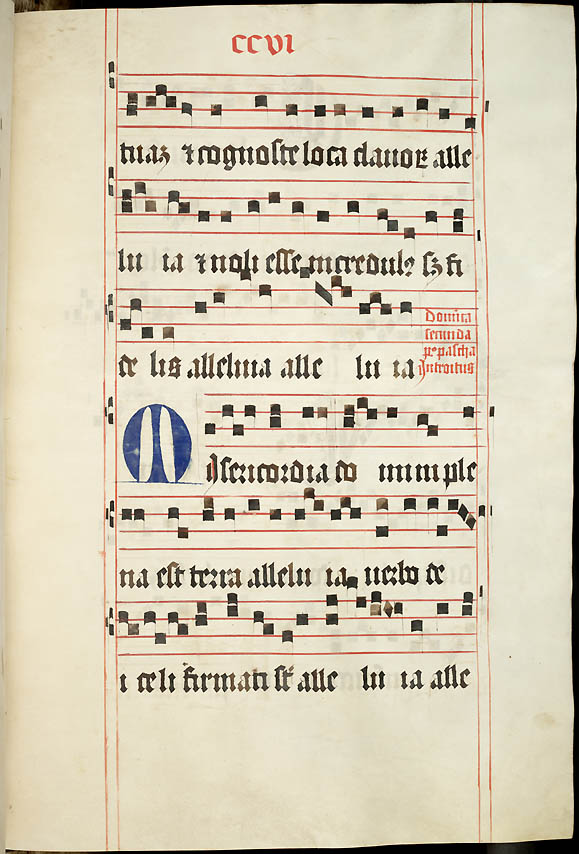 ccvi
tuaʒ ⁊ cognosce loca clauoꝝ alle
lu ia ⁊ noli esse incredulꝰ sꝫ fi
de lis alleluia alle lu ia
Domīca
secunda
pꝰ pascha
Introitus
Misericordia do mini ple
na est terra allelu ia uerbo de
i celi firmati sūt alle lu ia alle